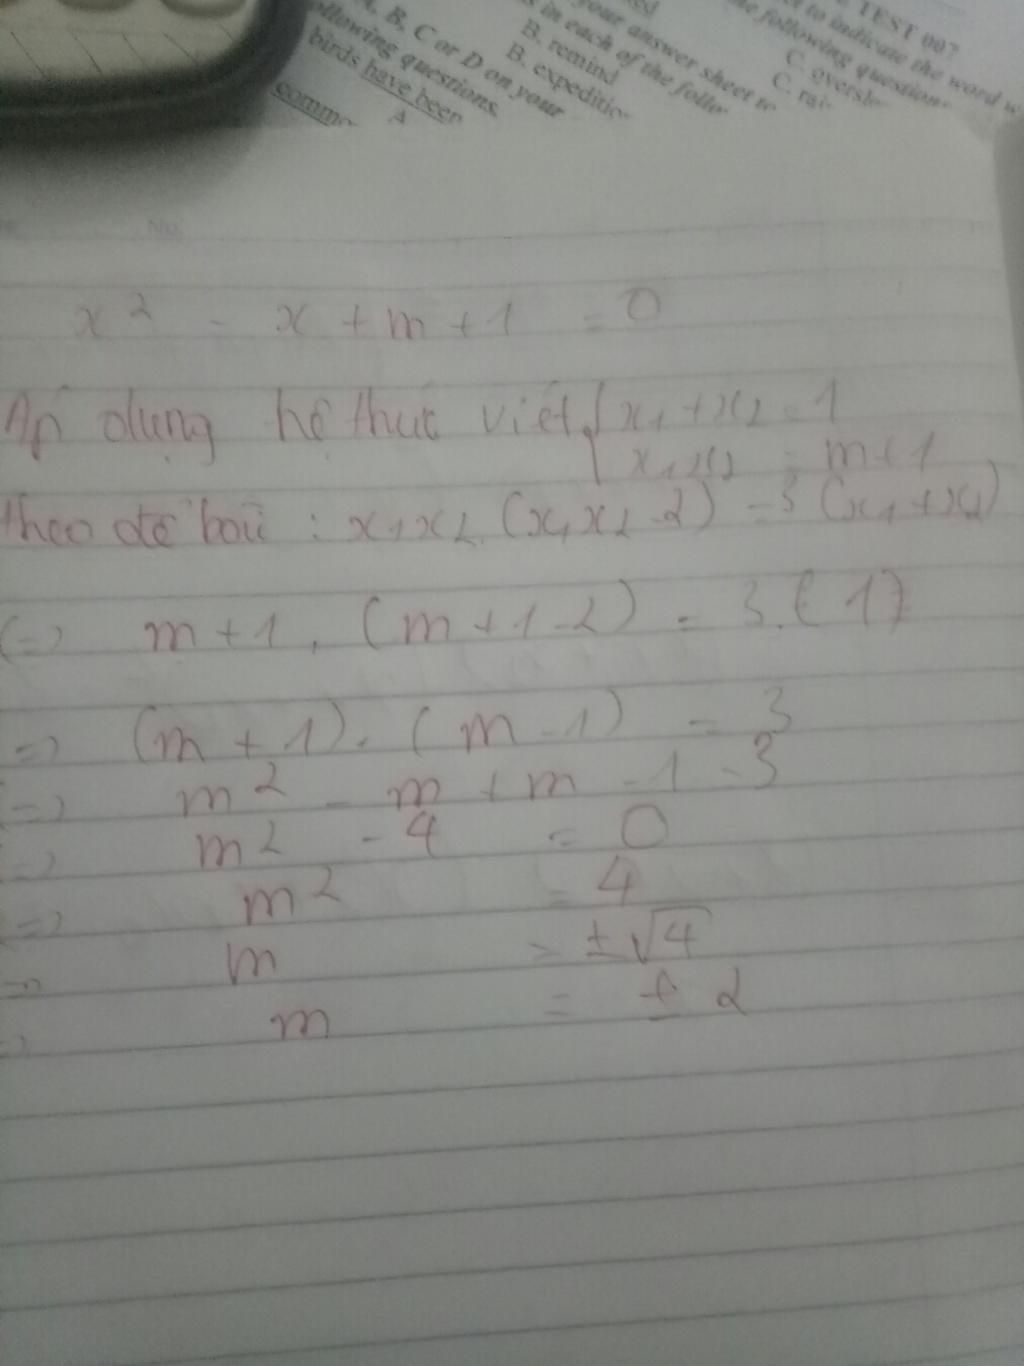 TEST 007
to indicate the word w
the following question
C. oversl
C. rai
your answer sheet to
s in each of the follo
B. remind
B. expeditio
A, B, C or D on your
ollowing questions.
birds have been
A
comme
No.
x² - x + m + 1 = 0
Áp dụng hệ thức viét { x₁ + x₂ = 1
x₁x₂ = m + 1
theo đề bài : x₁x₂. (x₁x₂ - 2) = 3 (x₁ + x₂)
(=) m + 1 . (m + 1 - 2) = 3. (1)
=) (m + 1). (m - 1) = 3
(=) m² - m + m - 1 = 3
=) m² - 4 = 0
=) m² = 4
=) m = ±√4
=) m = ± 2